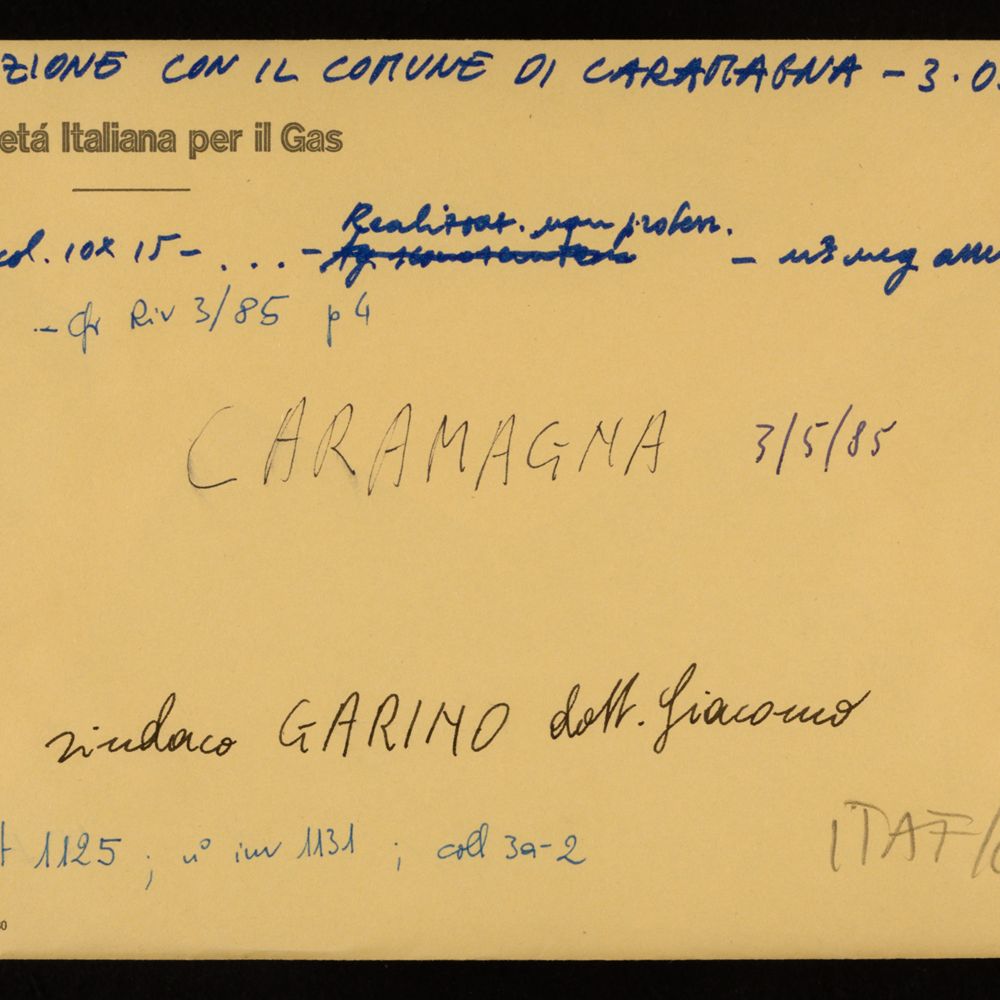 ZIONE CON IL COMUNE DI CARAMAGNA - 3.0
etá Italiana per il Gas
Realizzat. non profess.
col. 10x15 - . . . - - n°3 neg
- cfr Riv 3/85 p 4
CARAMAGNA 3/5/85
sindaco GARINO dott. Giacomo
1125 ; n° inv 1131 ; coll 3a-2
ITAF/